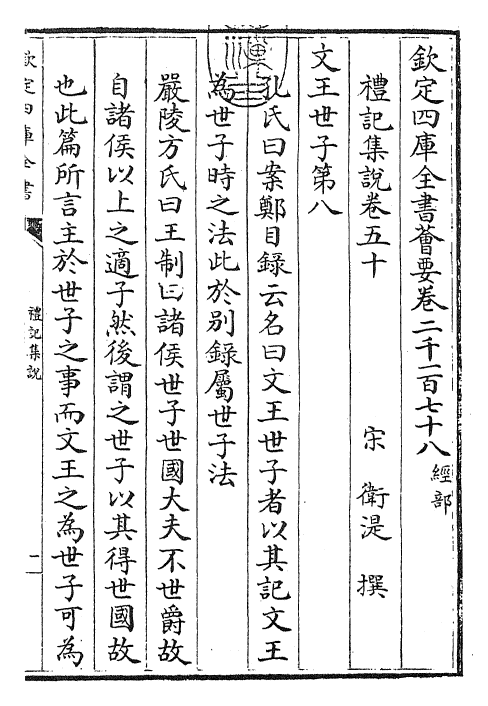 欽定四庫全書薈要卷二千一百七十八 經部
禮記集說卷五十
宋 衛湜 撰
文王世子第八
孔氏曰案鄭目錄云名曰文王世子者以其記文王
為世子時之法此於别錄屬世子法
嚴陵方氏曰王制曰諸侯世子世國大夫不世爵故
自諸侯以上之適子然後謂之世子以其得世國故
也此篇所言主於世子之事而文王之為世子可為
欽定四庫全書
禮記集說